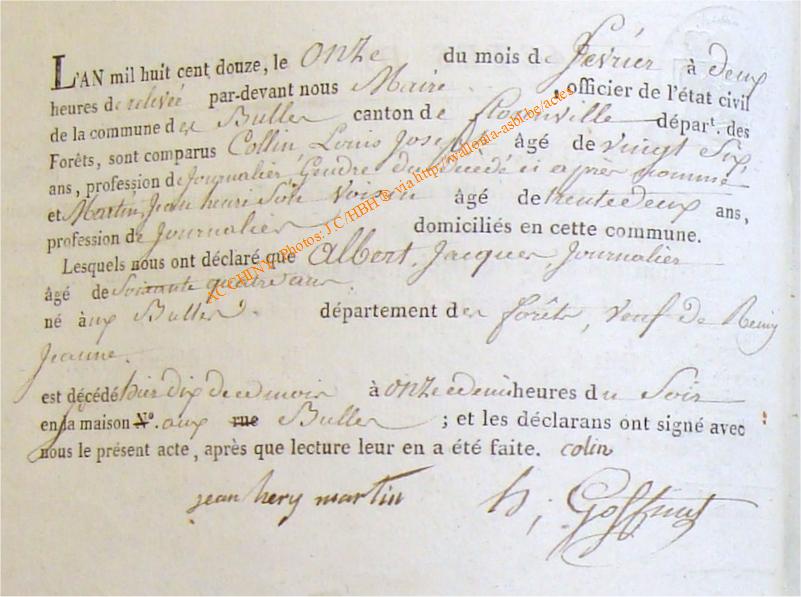 L'AN mil huit cent douze, le onze du mois de fevrier à deux
heures de relevée par-devant nous Maire officier de l'état civil
de la commune des Bulles canton de florenville départ. des
Forêts, sont comparus Collin Louis Joseph âgé de vingt Six
ans, profession de Journalier, Gendre du décédé ci après nommé
et Martin Jean henri Son Voisin âgé de trente deux ans,
profession de Journalier domiciliés en cette commune.
Lesquels nous ont déclaré que albert, Jacques Journalier
âgé de Soixante quatre ans
né aux Bulles. département des forêts, veuf de Remy
Jeanne.
est décédé hier dix de ce mois à onze et demi heures du Soir
en sa maison N°. aux rue Bulles ; et les déclarans ont signé avec
nous le présent acte, après que lecture leur en a été faite. colin
jean hery martin h; Goffinet
ACCHINY - Photos: J.C/HBH ® via http://wallonia-asbl.be/actes